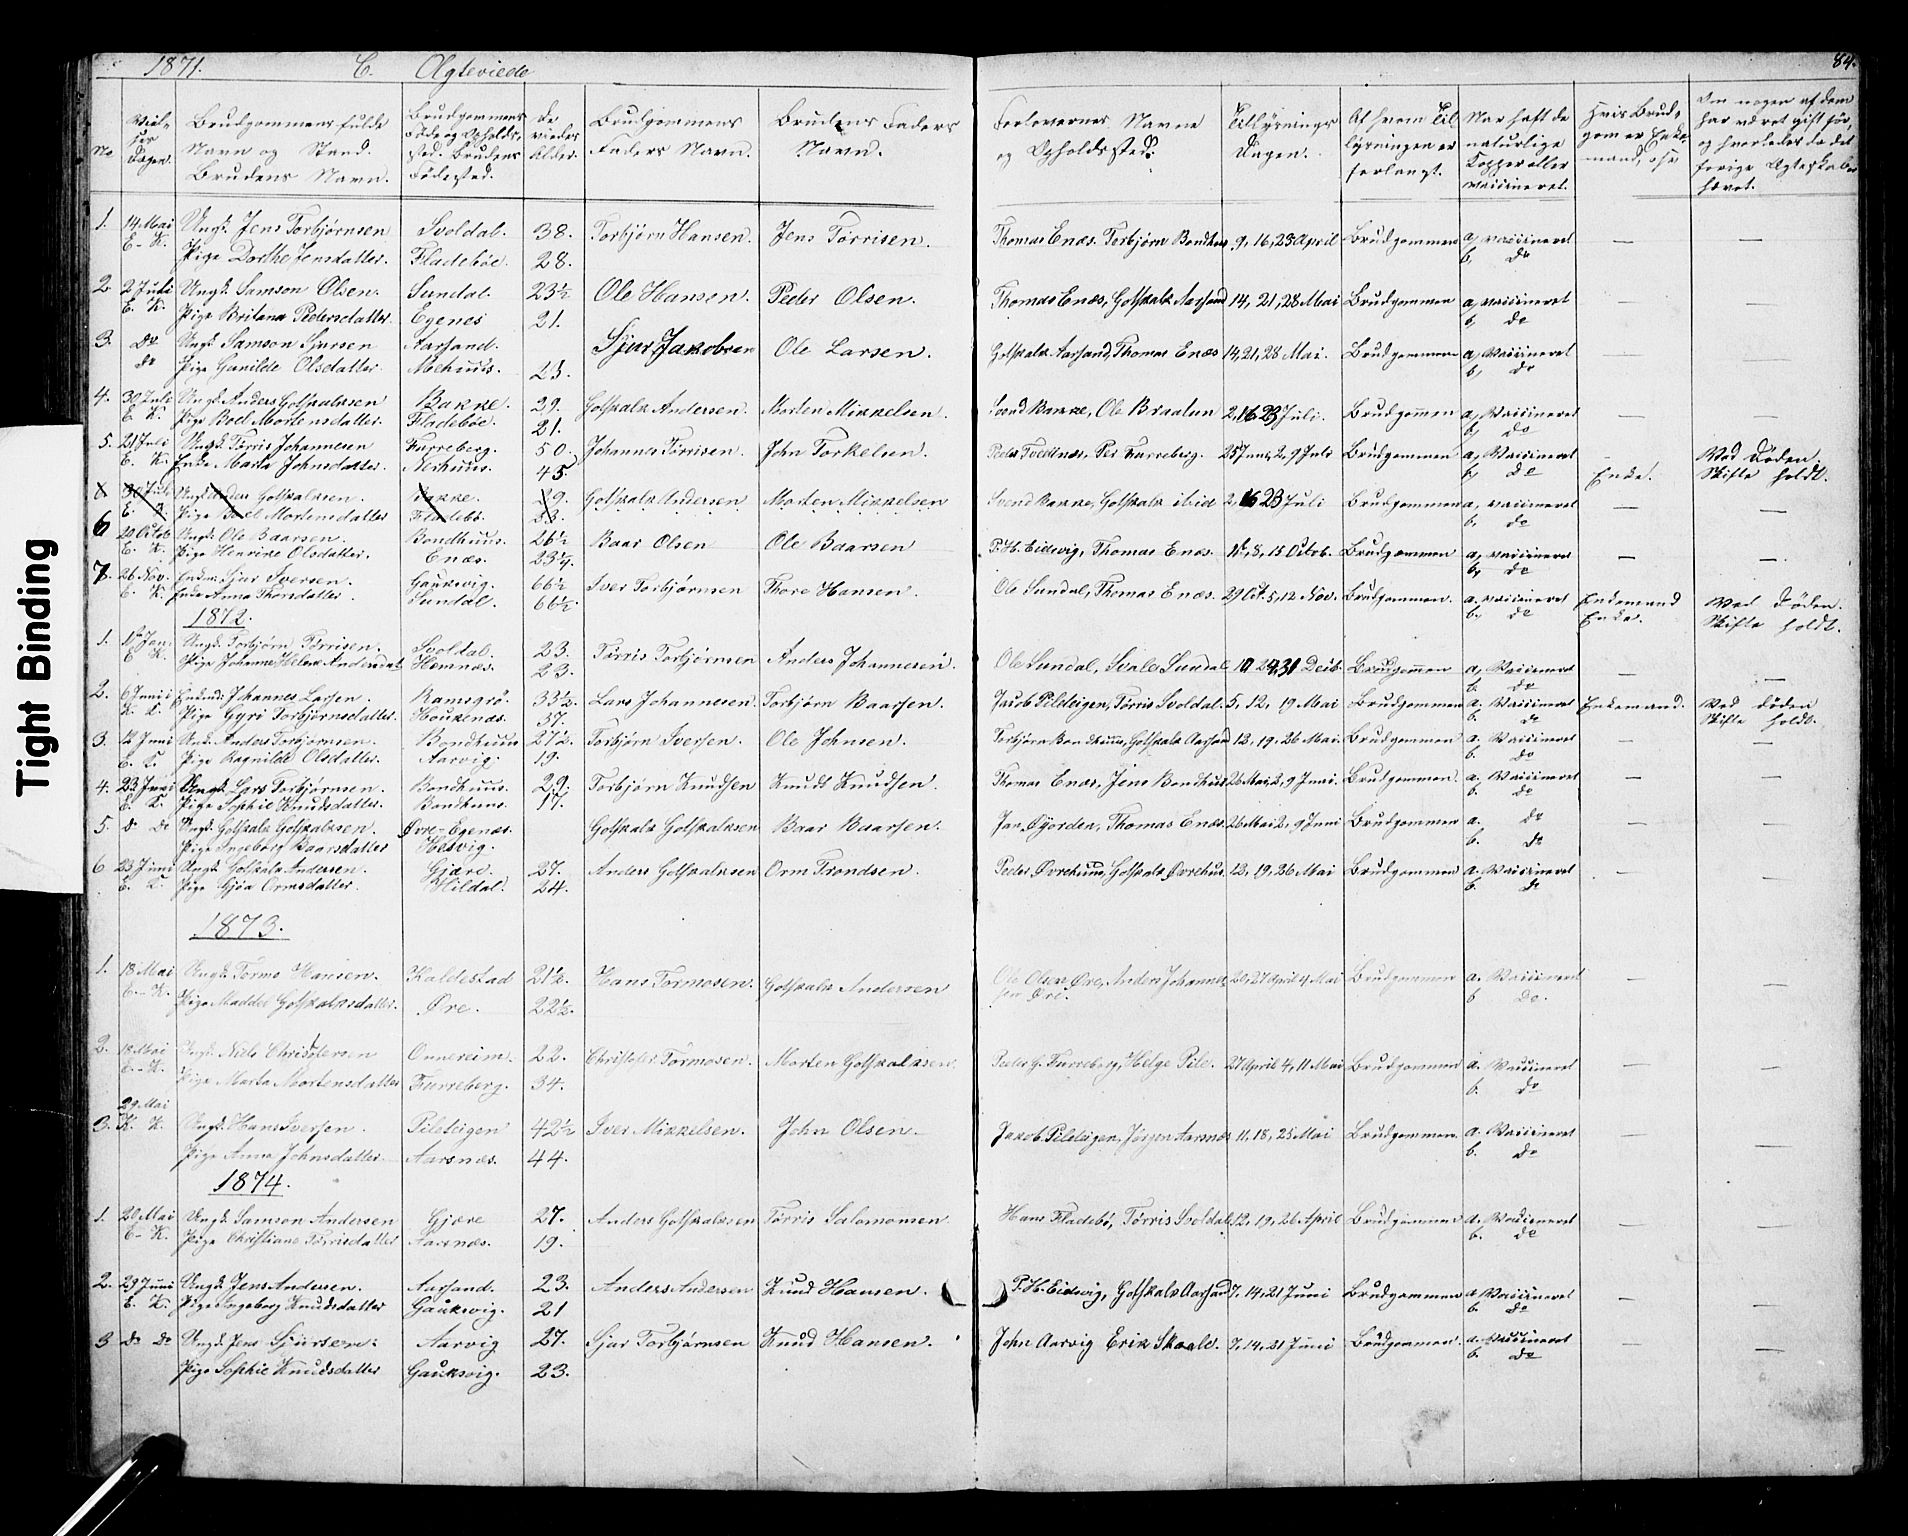 1871. C. Ægteviede 84.
No
Viel-
ses
Dagen.
Brudgommens fulde
Navn og Stand.
Brudens Navn.
Brudgommens
Føde og Opholds-
sted. Brudens
Fødested.
De
viedes
Alder.
Brudgommens
Faders Navn.
Brudens Faders
Navn.
Forlovernes Navne
og Opholdssted.
Tillysnings
Dagen.
Af hvem Til
lysningen er
forlangt.
Har haft de
naturlige
Kopper eller
vaccineret.
Hvis Brud-
gom er Enke-
mand, ose
Om nogen af dem
har været gift før,
og hvorledes da det
forrige Ægteskab er
hævet.
1. 14 Mai Ungk. Jens Torbjørnsen Svoldal. 38. Torbjørn Hansen. Jens Tørrisen. Thomas Enæs. Torbjørn Bondhus 9, 16, 23 April Brudgommen a, vaccineret — —
E. K. Pige Dorthe Jensdatter. Fladebøe. 28. b, do
2. 2 Juli Ungk. Samson Olsen. Sundal. 23½ Ole Hansen. Peder Olsen. Thomas Enæs, Gotskalk Aarsand 14, 21, 28 Mai Brudgommen a, vaccineret — —
E. K. Pige Britana Pedersdatter. Egenes 21. b, do
3. do Ungk. Samson Sjursen Aarsand. Sjur Jakobsen Ole Larsen. Gotskalk Aarsand, Thomas Enæs 14, 21, 28 Mai. Brudgommen a, vaccineret — —
do Pige Gunilde Olsdatter. Mehuus. 23. b, do
4. 30 Juli Ungk. Anders Gotskalksen Bakke. 29. Gotskalk Andersen. Morten Mikkelsen. Svend Bakke, Ole Braatun 2, 16 23 Juli. Brudgommen a, Vaccineret — —
E. K. Pige Boel Mortensdatter. Fladebøe. 21. b, do
5. 21 Juli Ungk. Tørris Johannesen Furreberg. 50. Johannes Tørrisen. John Torkelsen. Peder Tvedtnæs, Per Furreberg. 25 Juni, 2, 9 Juli Brudgommen a, Vaccineret - Ved Døden.
E. K. Enke Marta Johnsdatter. Nerhuus. 45. b, do Enke. Skifte holdt.
30 Juli Ungk. Anders Gotskalksen. Bakke. 29. Gotskalk Andersen Morten Mikkelsen Svend Bakke, Gotskalk ibid 2, 16 23 Juli Brudgommen a, vaccineret — —
E. K. Pige Boel Mortensdatter Fladebø. 23. b, do
6 20 Octob Ungk. Ole Baarsen. Bondhuus. 26½ Baar Olsen Ole Baarsen P. H. Eidsvig, Thomas Enæs. 1, 8, 15 Octob. Brudgommen a, vaccineret — —
E. K. Pige Henrike Olsdatter. Enæs. 23¼. b, do
7. 26 Nov. Enkm. Sjur Iversen. Gauksvig. 66½ Iver Torbjørnsen Thore Hansen. Ole Sundal, Thomas Enæs. 29 Oct. 5, 12 Nov. Brudgommen. a. vaccineret Enkemand Ved Døden.
E. K. Enke Anna Thoresdatter. Sundal. 66½. b, do Enke. Skifte holdt.
1872.
1. Jan. Ungk. Torbjørn Tørrisen. Svoldal. 23. Tørris Torbjørnsen Anders Johannesen. Ole Sundal, Sundal 24, 31 Decb. Brudgommen a, Vaccineret — —
E. K. Pige Johanne Helene Andersdat. Hemnæs. 23. b. do
2. 6 Juni Enkemd. Johannes Larsen. Ramsgrø. 33½. Lars Johannesen. Torbjørn Baarsen. Jacob Pileteigen, Tørris Svoldal. 5, 12, 19 Mai Brudgommen a. Vaccineret Enkemand. Ved døden
K. K. Pige Gyri Torbjørnsdatter. Houkenæs. 37. b. do Skifte holdt.
3. 12 Juni Ungk. Anders Torbjørnsen. Bondhuus 27½. Torbjørn Iversen. Ole Johnsen. Torbjørn Bondhuus, Gotskalk Aarsand 12, 19, 26 Mai. Brudgommen a. Vaccineret — —
E. K. Pige Ragnilde Olsdatter. Aarvig. 19. b. do
4. 23 Juni Ungk. Lars Torbjørnsen. Bondhuus. 29. Torbjørn Knudsen Knudt Knudsen. Thomas Enæs, Jens Bondhus 26 Mai 2, 9 Juni. Brudgommen. a. Vaccineret — —
E. K. Pige Sophie Knudsdatter. Bondhuus. 17. b. do
5. do do Ungk. Gotskalk Gotskalksen. Øvre-Egenæs. Gotskalk Gotskalksen Baar Baarsen. Jan Øyorden, Thomas Enæs. 26 Mai 2, 9 Juni Brudgommen a. do — —
Pige Ingeborg Baarsdatter Helvig. b. do
6 23 Juni Ungk. Gotskalk Andersen. Gjære. 27. Anders Gotskalksen Orm Trondsen. Peder Øvrehuus, Gotskalk Øvrehus. 12, 19, 26 Mai Brudgommen a. Vaccineret — —
E. K. Pige Gjøa Ormsdatter. Hildal. 24. b. do
1873.
1. 18 Mai Ungk. Tormo Hansen. Kaldestad 21½. Hans Tormosen. Gotskalk Andersen Ole Olsen Øre, Anders Johannes 20, 27 April 4 Mai Brudgommen a. Vaccineret — —
E.-K. Pige Maddel Gotskalksdatter. Øre. 22½. sen Øre. b Do.
2. 18 Mai Ungk. Niels Christofersen Onnereim. 22. Christofer Tormosen. Morten Gotskalksen. Peder G. Furreberg, Helge Pile. 27 April 4, 11 Mai Brudgommen a. Vaccineret — —
E-K. Pige Marta Mortensdatter Furreberg. 34. b. do
29 Mai
3. K. K. Ungk. Hans Iversen. Pileteigen 42½ Iver Mikkelsen. John Olsen. Jakob Pileteigen, Jørgen Aarsnæs 11, 18, 25 Mai Brudgommen. a. Vaccineret — —
Pige Anna Johnsdatter. Aarsnæs. 44. b. do
1874.
1. 20 Mai Ungk. Samson Andersen Gjære 27. Anders Gotskalksen Tørris Salomonsen Hans Fladebø, Tørris Svoldal. 12, 19, 26 April Brudgommen a. Vaccineret — —
E-K. Pige Christiane Tørrisdatter Aarsnæs. 19. b. do
2. 29 Juni Ungk. Jens Andersen. Aarsand. 23. Anders Andersen Knud Hansen. P. H. Eidsvig, Gotskalk Aarsand 7, 14, 21 Juni Brudgommen a. Vaccineret — —
E. K. Pige Ingeborg Knudsdatter Gauksvig. 21 b. do
3 do do Ungk. Jens Sjursen. Aarvig 27. Sjur Torbjørnsen Knud Hansen. John Aarvig Erik Skaale. 7, 14, 21 Juni Brudgommen. a. Vaccineret — —
Pige Sophie Knudsdatter Gauksvig. 23. b. do
Tight Binding